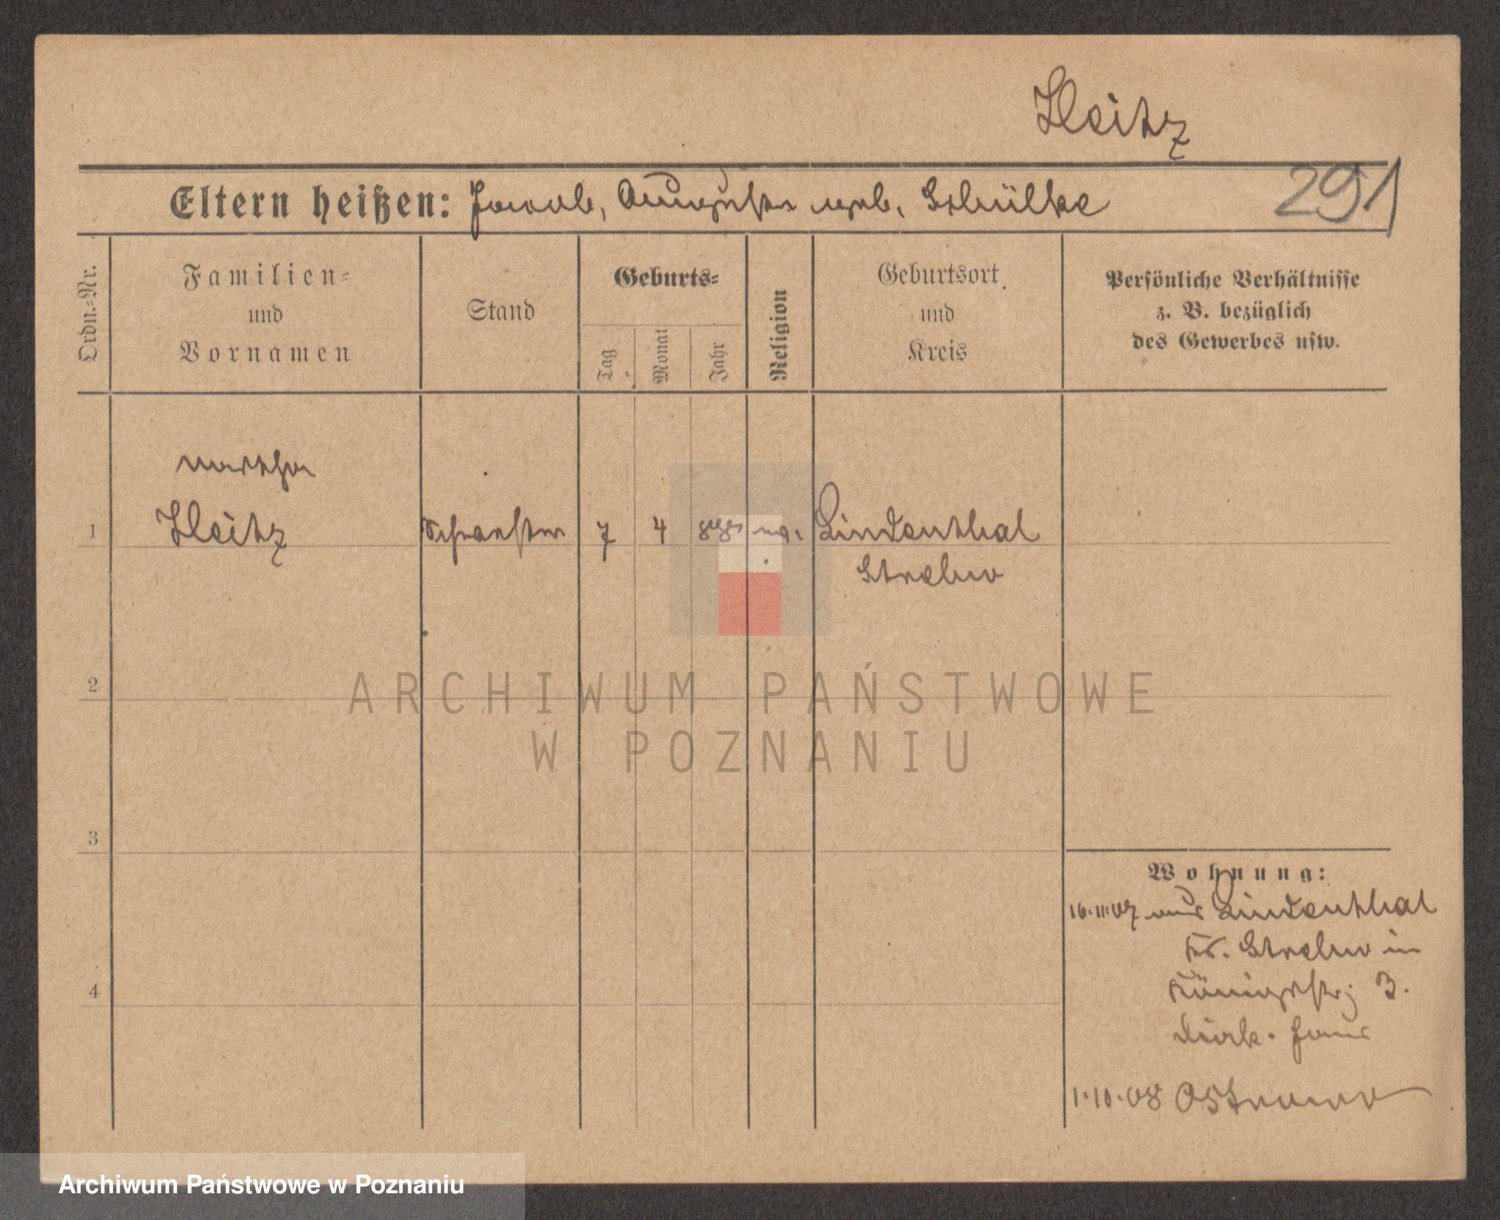 Heitz
Eltern heißen: Jacob, Auguste geb. Schülke
291
Ordn.=Nr.
Familien=
und
Vornamen
Stand
Geburts=
Tag
Monat
Jahr
Religion
Geburtsort
und
Kreis
Persönliche Verhältnisse
z. B. bezüglich
des Gewerbes usw.
Martha
1 Heitz Schwester 7 4 Lindenthal
Strelno
2
ARCHIWUM PAŃSTWOWE
W POZNANIU
3
Wohnung:
16.11.07 aus Lindenthal
Kr. Strelno in
Königstr. 3.
Diak. Haus
4
1.10.08 Ostrowo
Archiwum Państwowe w Poznaniu